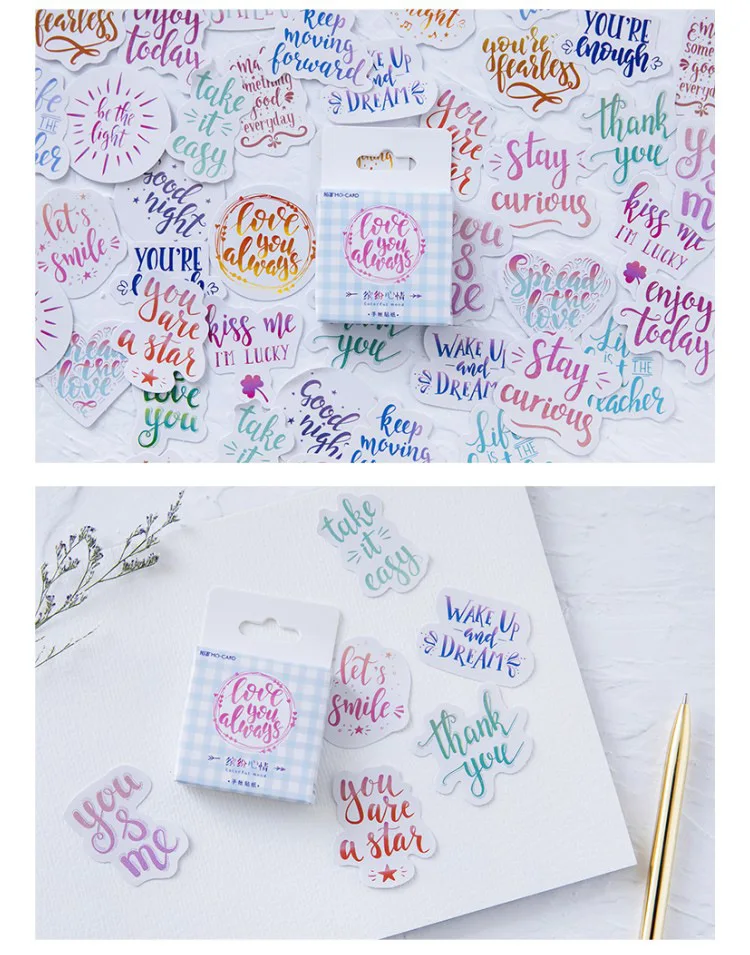 fearless
enjoy
today
keep
moving
forward
WAKE UP
and
DREAM
you're
fearless
YOU'RE
enough
be the
light
take
it
easy
something
good
everyday
you
are
stay
curious
thank
you
kiss me
I'M LUCKY
let's
smile
good
night
love
you
always
MO·CARD
love
you
always
缤纷心情
Colorful mood
·手帐贴纸·
YOU'RE
you
are
a star
kiss me
I'M LUCKY
Spread
the
love
enjoy
today
the
love
love
you
you
WAKE UP
and
DREAM
stay
curious
THE
take
Good
night
keep
moving
take
it
easy
WAKE UP
and
DREAM
MO·CARD
love
you
always
缤纷心情
Colorful mood
·手帐贴纸·
let's
smile
thank
you
you
&
me
you
are
a star